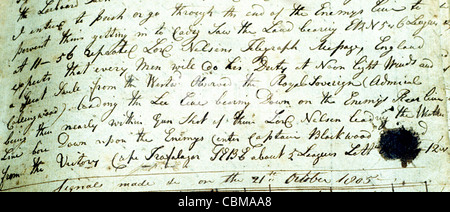 intend to push or go through the end of the Enemys Line to
prevent them getting in to Cadiz Saw the Land bearing EBN 5 or 6 Leagues
at 11-56 repeated Lord Nelsons Telegraph Message, England
expects that every Man will do his Duty at Noon Light Winds and
a great Swell from the Westwd Observed the Royal Sovereign (Admiral
Collingwood) leading the Lee Line bearing Down on the Enemys Rear Line
being then nearly within Gun Shot of them Lord Nelson leading the Weather
Line bore down upon the Enemys Center Captain Blackwood
from the Victory Cape Trafalgar SEBE about 5 Leagues
Signals made on the 21st October 1805
alamy
CBMAA8
www.alamy.com